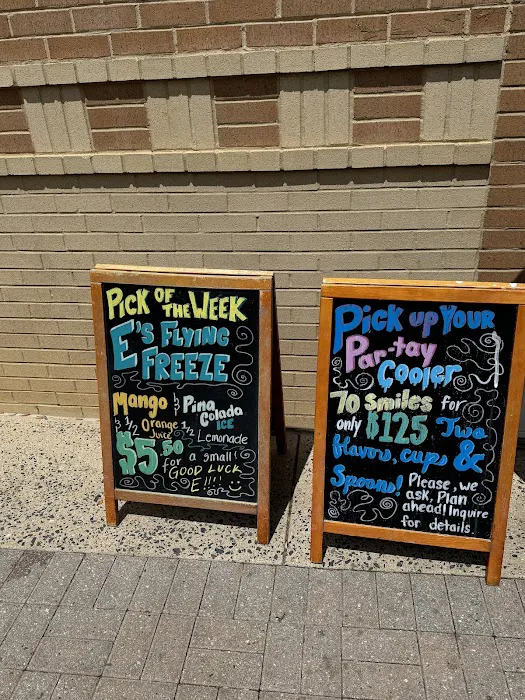 PICK OF THE WEEK
E'S FLYING
FREEZE
Mango & Pina Colada ICE
& 1/2 Orange Juice 1/2 Lemonade
$5.50 for a small!
GOOD LUCK
E!!!!
Pick up Your
Par-tay
Cooler
70 Smiles for
only $125 Two
flavors, cups &
Spoons! Please, we
ask, Plan
ahead! Inquire
for details.